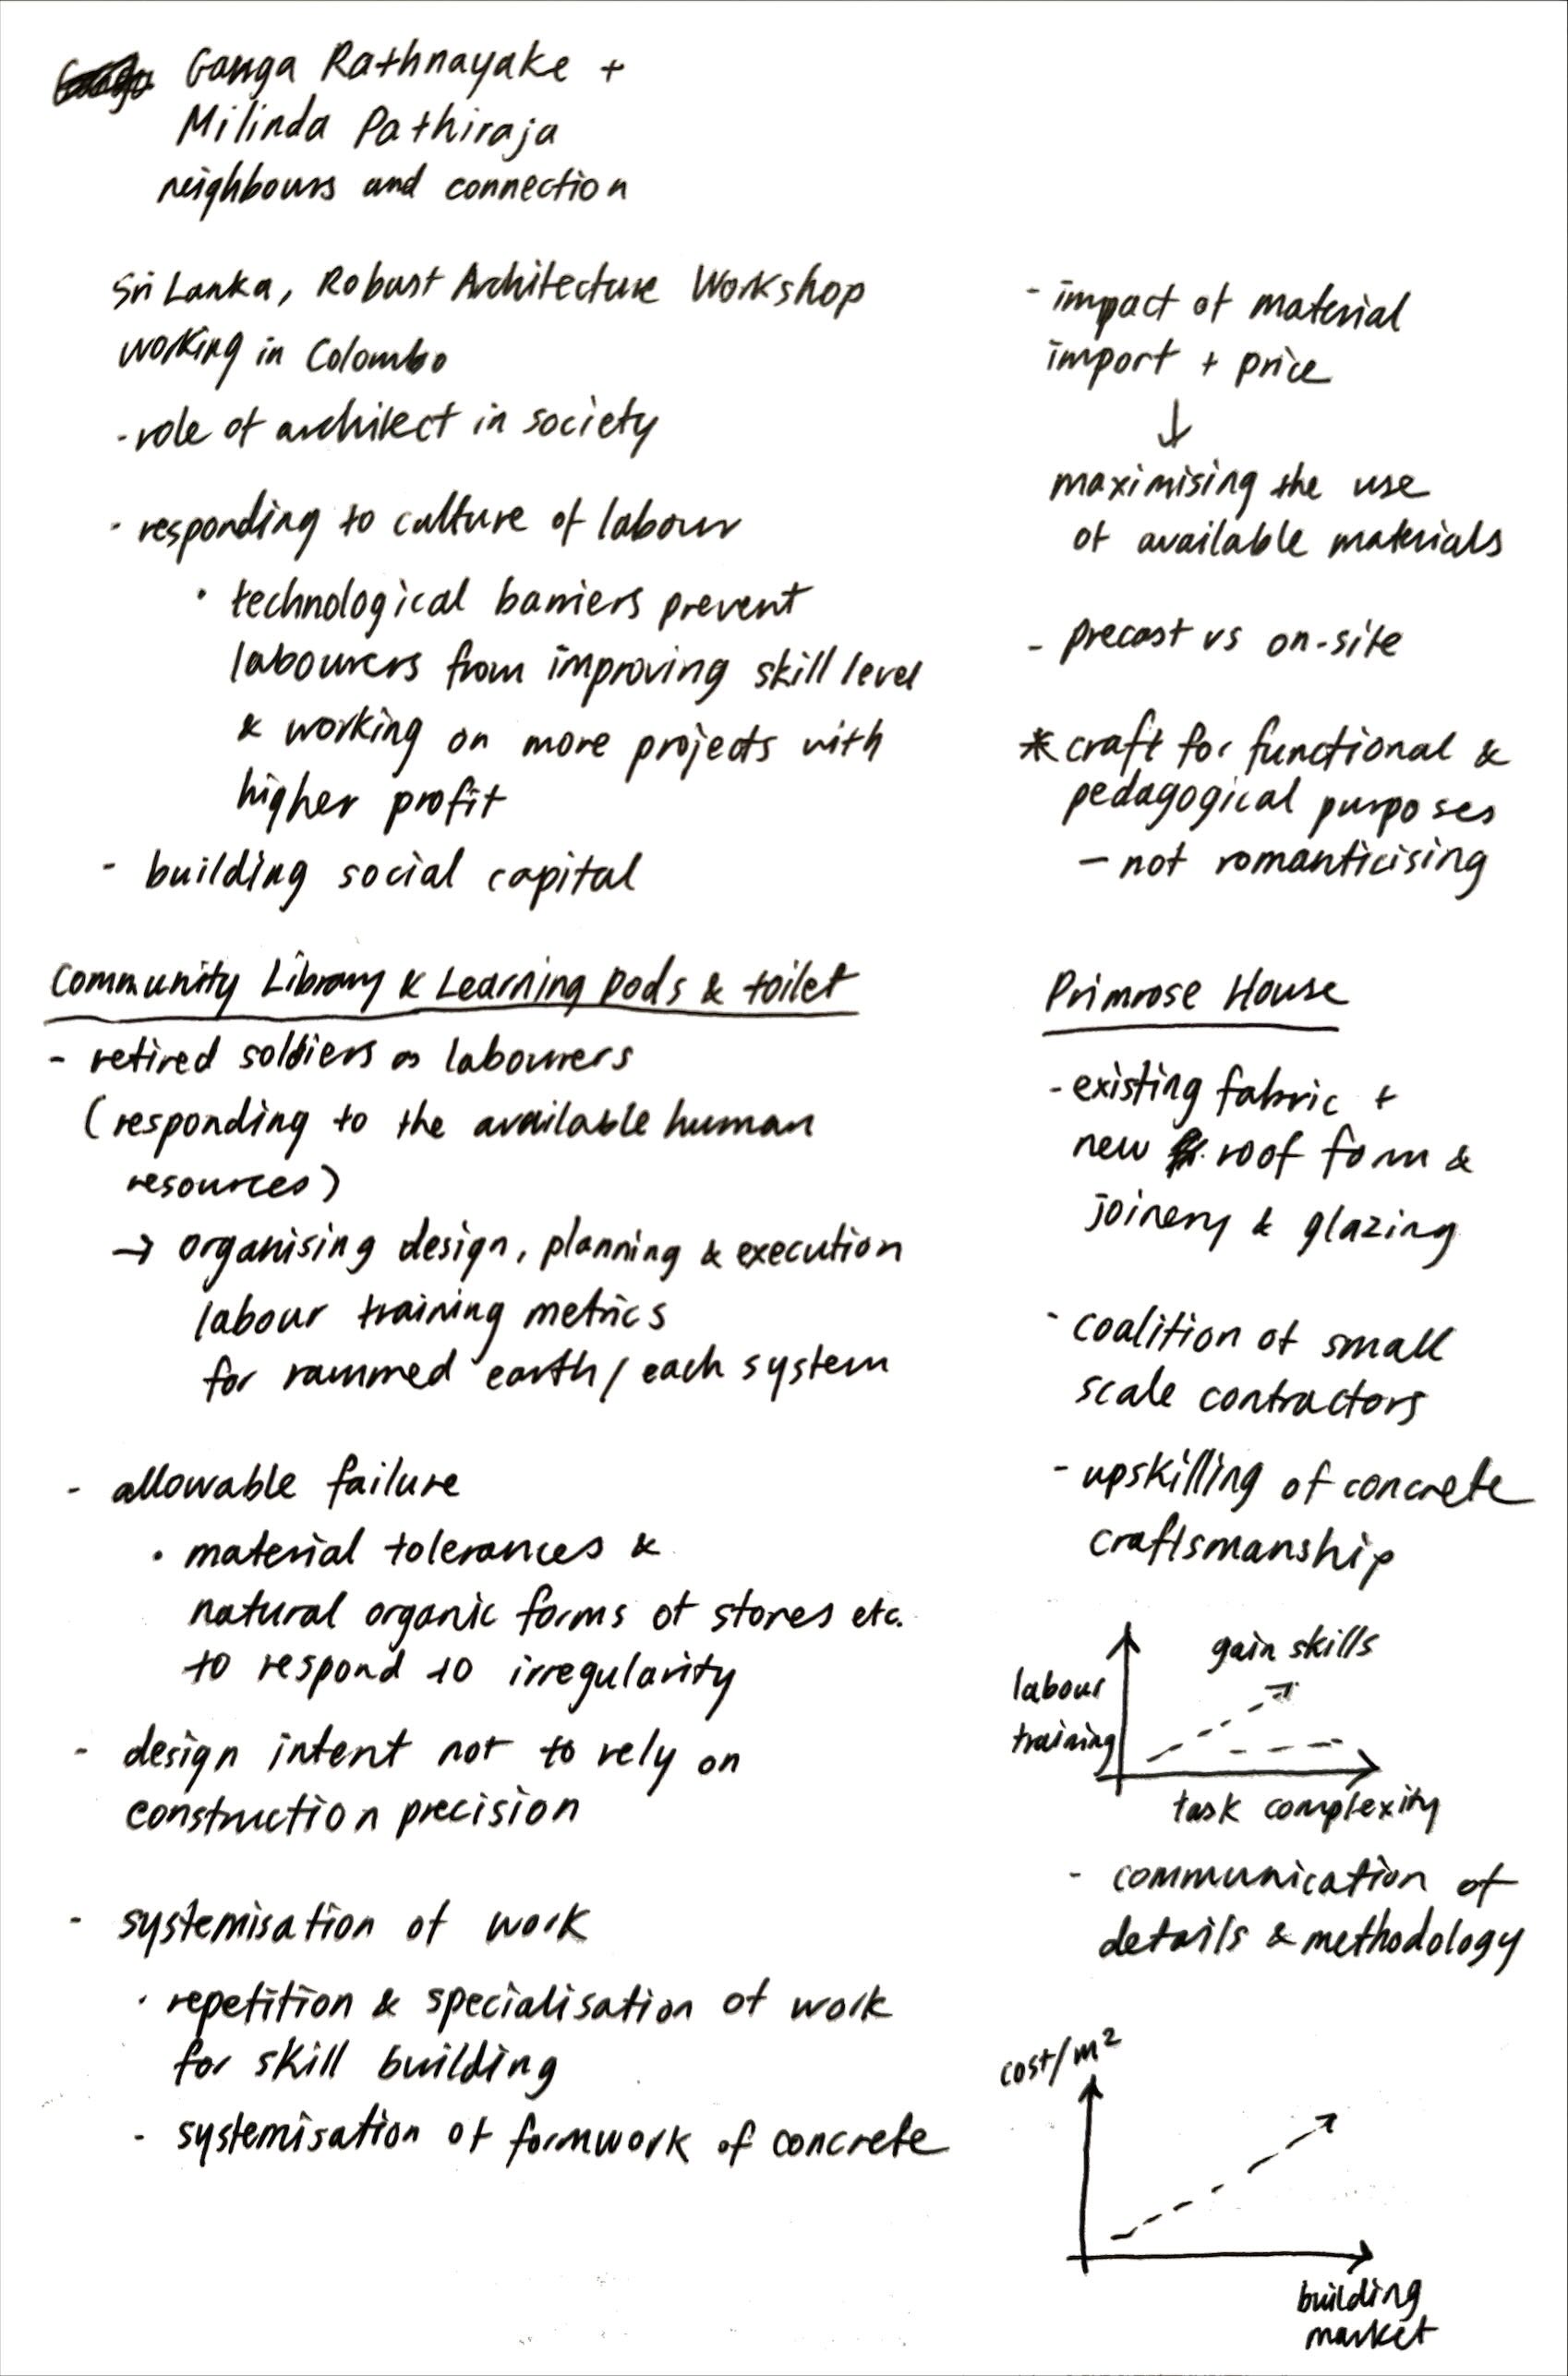 Ganga Rathnayake +
Milinda Pathiraja
neighbours and connection
Sri Lanka, Robust Architecture Workshop
working in Colombo
- role of architect in society
- responding to culture of labour
• technological barriers prevent
labourers from improving skill level
& working on more projects with
higher profit
- building social capital
Community Library & Learning Pods & toilet
- retired soldiers as labourers
(responding to the available human
resources)
→ organising design, planning & execution
labour training metrics
for rammed earth / each system
- allowable failure
• material tolerances &
natural organic forms of stones etc.
to respond to irregularity
- design intent not to rely on
construction precision
- systemisation of work
• repetition & specialisation of work
for skill building
- systemisation of formwork of concrete
- impact of material
import + price
↓
maximising the use
of available materials
- precast vs on-site
* craft for functional &
pedagogical purposes
— not romanticising
Primrose House
- existing fabric +
new roof form &
joinery & glazing
- coalition of small
scale contractors
- upskilling of concrete
craftsmanship
gain skills
labour
training
task complexity
- communication of
details & methodology
cost/m²
building
market